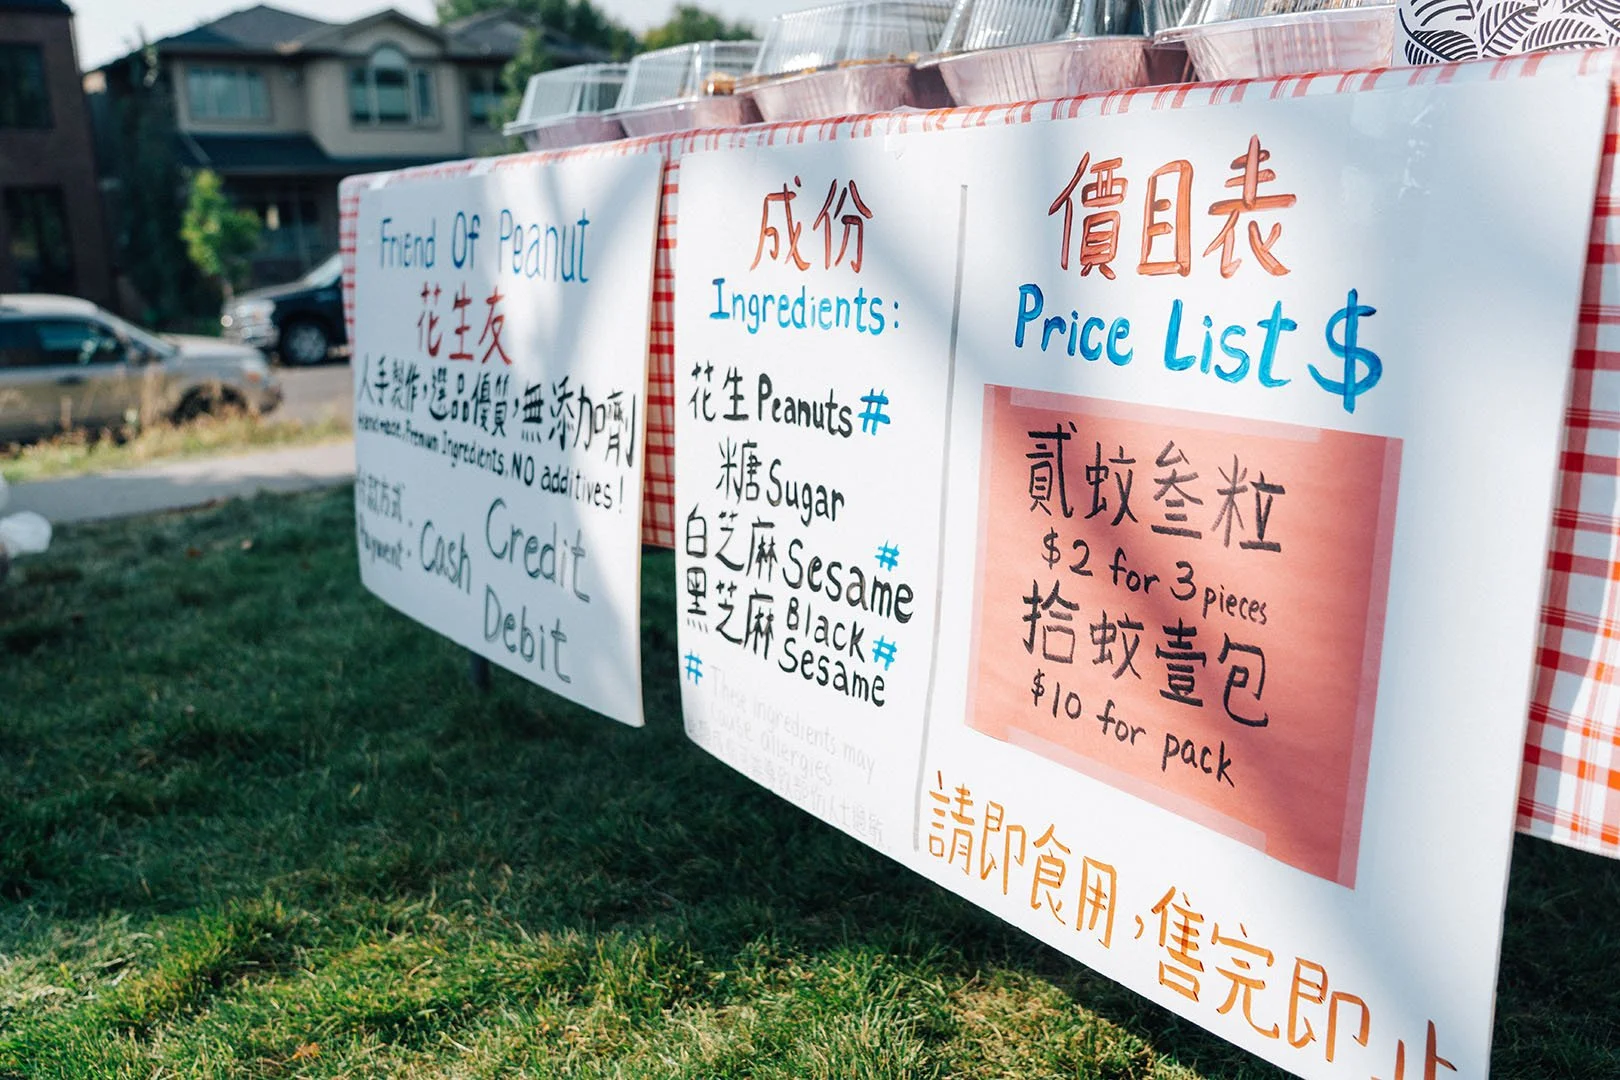 Friend Of Peanut
花生友
人手製作，選品優質，無添加嚌
Hand-made, Premium Ingredients, NO additives!
付款方式：
Payment: Cash Credit
Debit
成份
Ingredients:
花生 Peanuts #
糖 Sugar
白芝麻 Sesame #
黑芝麻 Black Sesame #
# These ingredients may
cause allergies
價目表
Price List $
貳蚊叁粒
$2 for 3 pieces
拾蚊壹包
$10 for pack
請即食用，售完即止